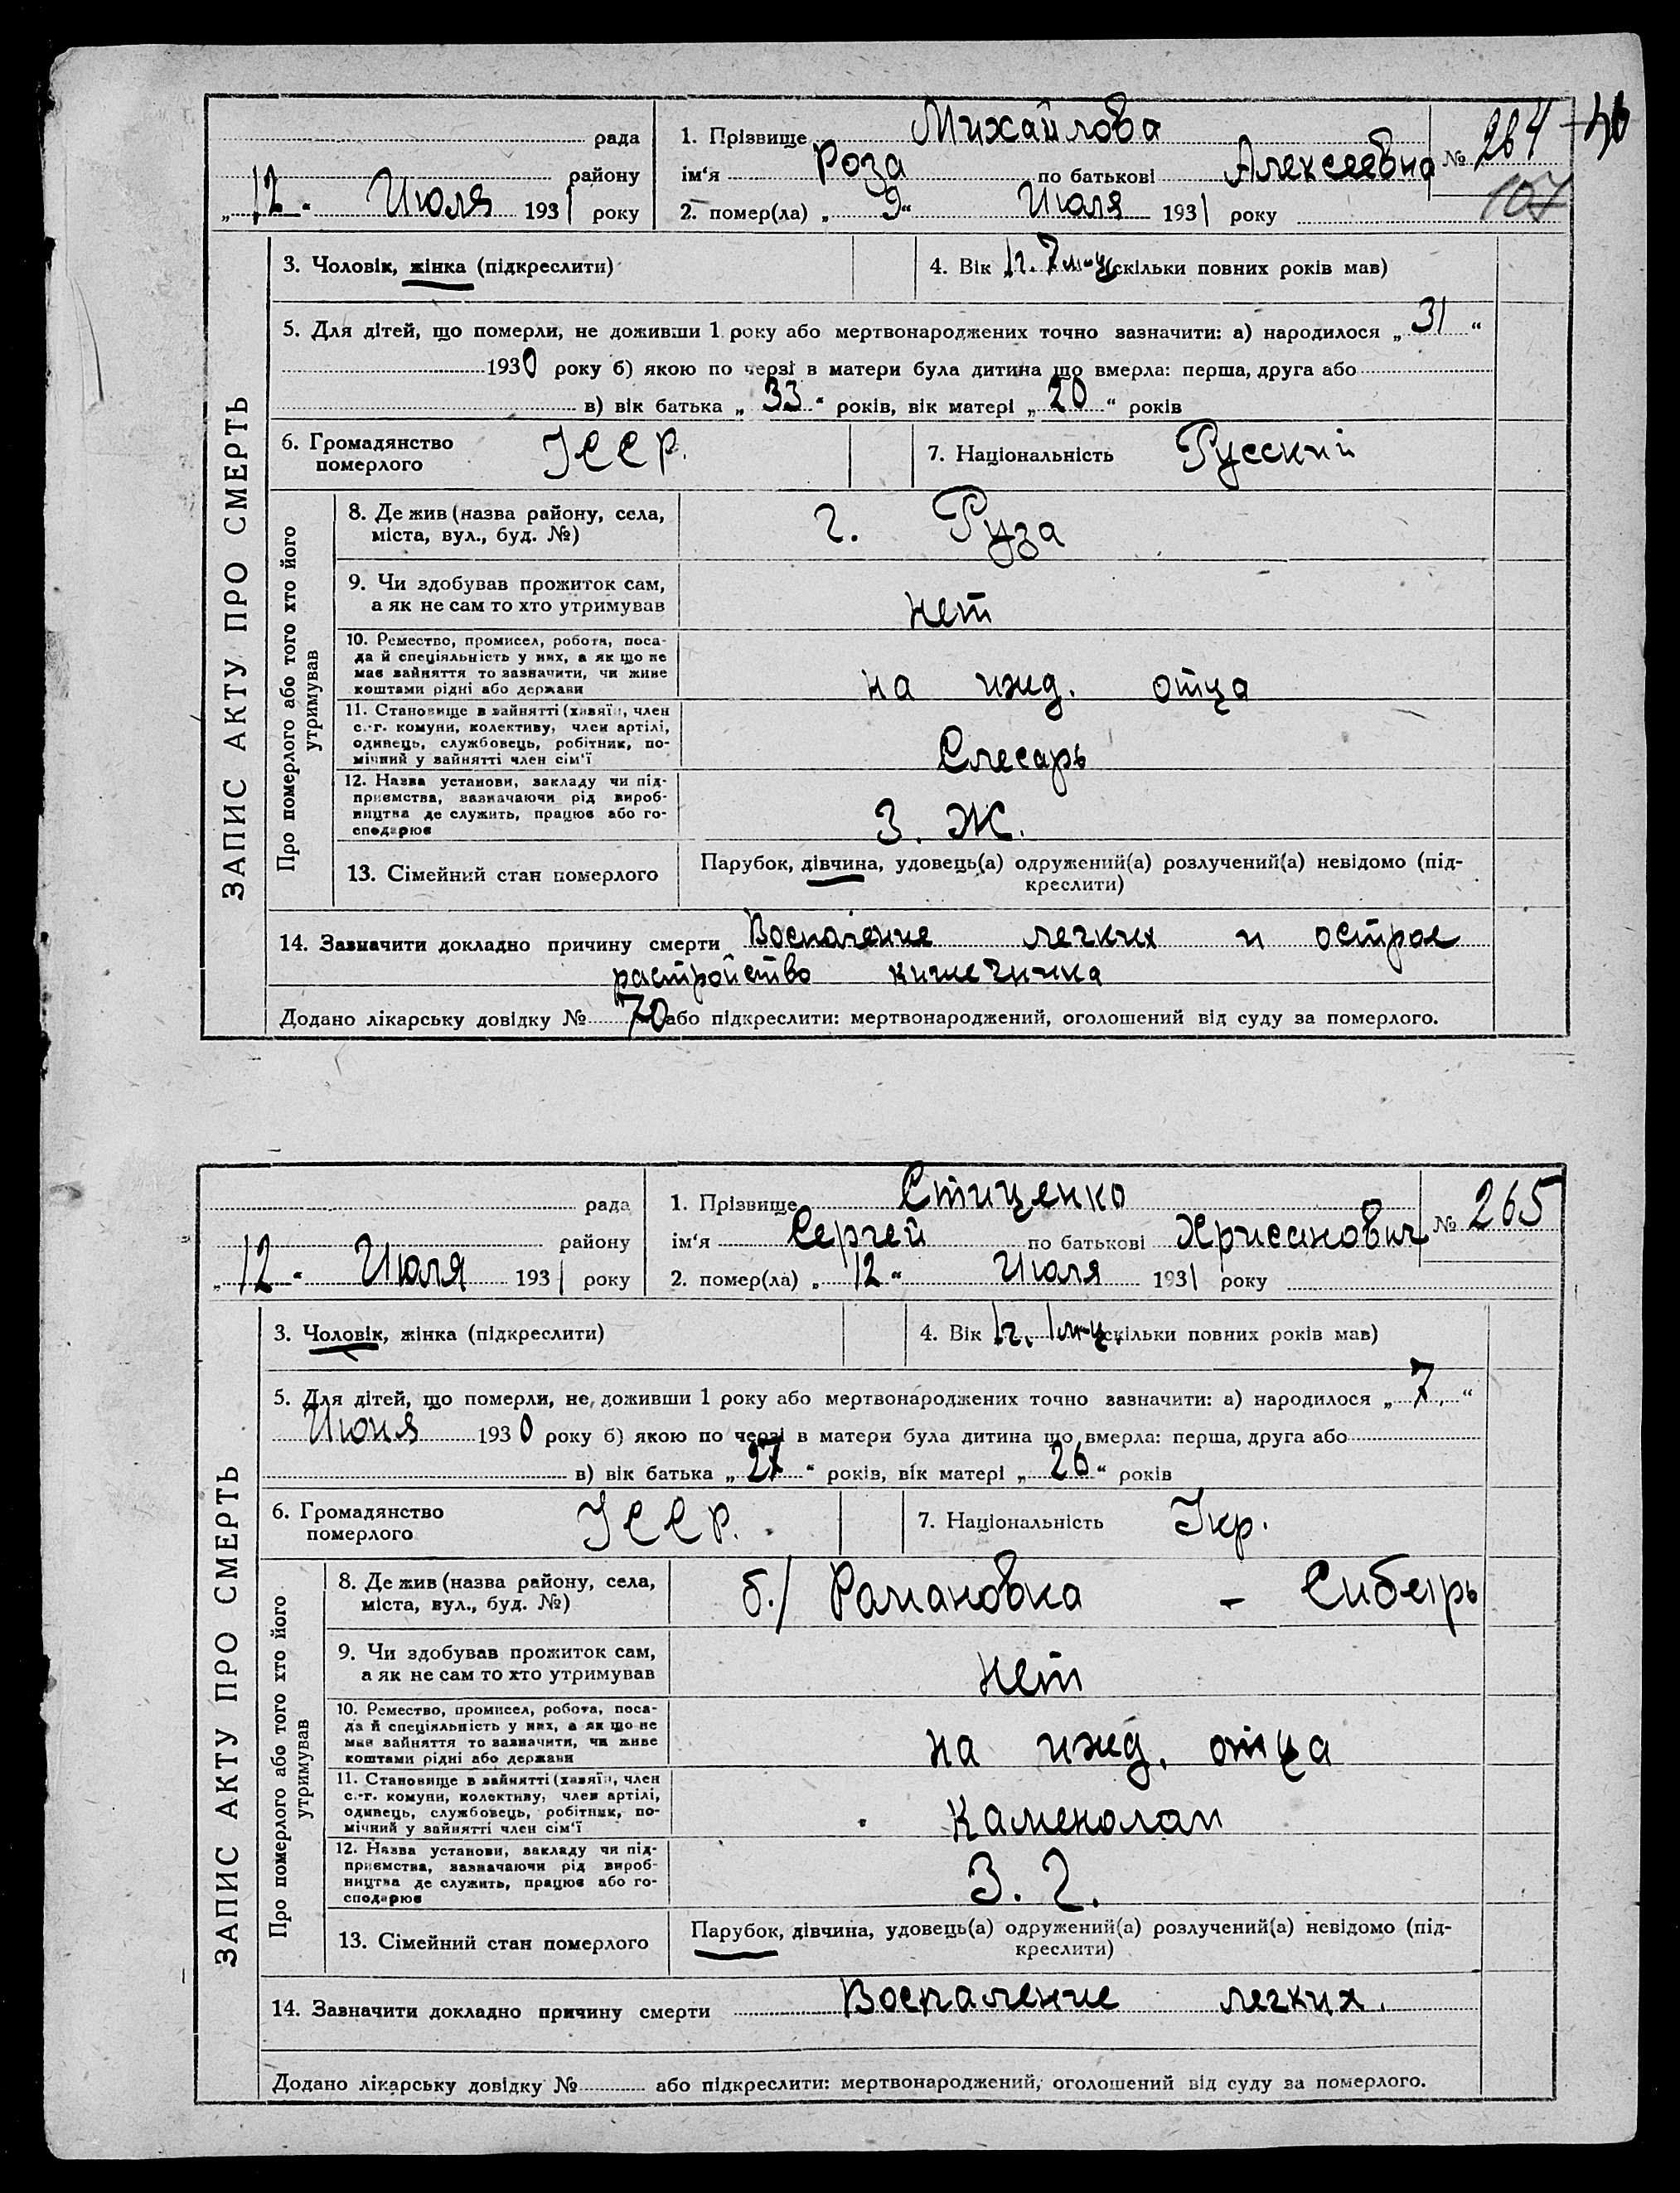 рада
1. Прізвище Михайлова
№ 264
району
ім‘я Роза по батькові Алексеевна
107
„ 12 “ Июля 1931 року
2. помер(ла) „ 9 “ Июля 1931 року
ЗАПИС АКТУ ПРО СМЕРТЬ
3. Чоловік, жінка (підкреслити)
4. Вік 1 г. 7 м-ц (скільки повних років мав)
5. Для дітей, що померли, не доживши 1 року або мертвонароджених точно зазначити: а) народилося „ 31 “
1930 року б) якою по черзі в матери була дитина що вмерла: перша, друга або
в) вік батька „ 33 “ років, вік матері „ 20 “ років
6. Громадянство
померлого
УССР.
7. Національність Русский
Про померлого або того хто його
утримував
8. Де жив (назва району, села,
міста, вул., буд. №)
г. Руза
9. Чи здобував прожиток сам,
а як не сам то хто утримував
нет
10. Ремество, промисел, робота, поса-
да й спеціяльність у них, а як що не
має зайняття то зазначити, чи живе
коштами рідні або держави
на ижд. отца
11. Становище в зайнятті (хазяїн, член
с.-г. комуни, колективу, член артілі,
одинець, службовець, робітник, по-
мічний у зайнятті член сім‘ї
Слесарь
12. Назва установи, закладу чи під-
приємства, зазначаючи рід вироб-
ництва де служить, працює або го-
сподарює
З. Ж.
13. Сімейний стан померлого
Парубок, дівчина, удовець(а) одружений(а) розлучений(а) невідомо (під-
креслити)
14. Зазначити докладно причину смерти Воспаление легких и острое
растройство кишечника
Додано лікарську довідку № 70 або підкреслити: мертвонароджений, оголошений від суду за померлого.
рада
1. Прізвище Стиценко
№ 265
району
ім‘я Сергей по батькові Хрисанович
„ 12 “ Июля 1931 року
2. помер(ла) „ 12 “ Июля 1931 року
ЗАПИС АКТУ ПРО СМЕРТЬ
3. Чоловік, жінка (підкреслити)
4. Вік 1 г. 1 м-ц. (скільки повних років мав)
5. Для дітей, що померли, не доживши 1 року або мертвонароджених точно зазначити: а) народилося „ 7 “
Июня 1930 року б) якою по черзі в матери була дитина що вмерла: перша, друга або
в) вік батька „ 27 “ років, вік матері „ 26 “ років
6. Громадянство
померлого
УССР.
7. Національність Укр.
Про померлого або того хто його
утримував
8. Де жив (назва району, села,
міста, вул., буд. №)
б./ Романовка – Сибирь
9. Чи здобував прожиток сам,
а як не сам то хто утримував
нет
10. Ремество, промисел, робота, поса-
да й спеціяльність у них, а як що не
має зайняття то зазначити, чи живе
коштами рідні або держави
на ижд. отца
11. Становище в зайнятті (хазяїн, член
с.-г. комуни, колективу, член артілі,
одинець, службовець, робітник, по-
мічний у зайнятті член сім‘ї
Каменолом
12. Назва установи, закладу чи під-
приємства, зазначаючи рід вироб-
ництва де служить, працює або го-
сподарює
З. 2.
13. Сімейний стан померлого
Парубок, дівчина, удовець(а) одружений(а) розлучений(а) невідомо (під-
креслити)
14. Зазначити докладно причину смерти Воспаление легких.
Додано лікарську довідку № або підкреслити: мертвонароджений, оголошений від суду за померлого.